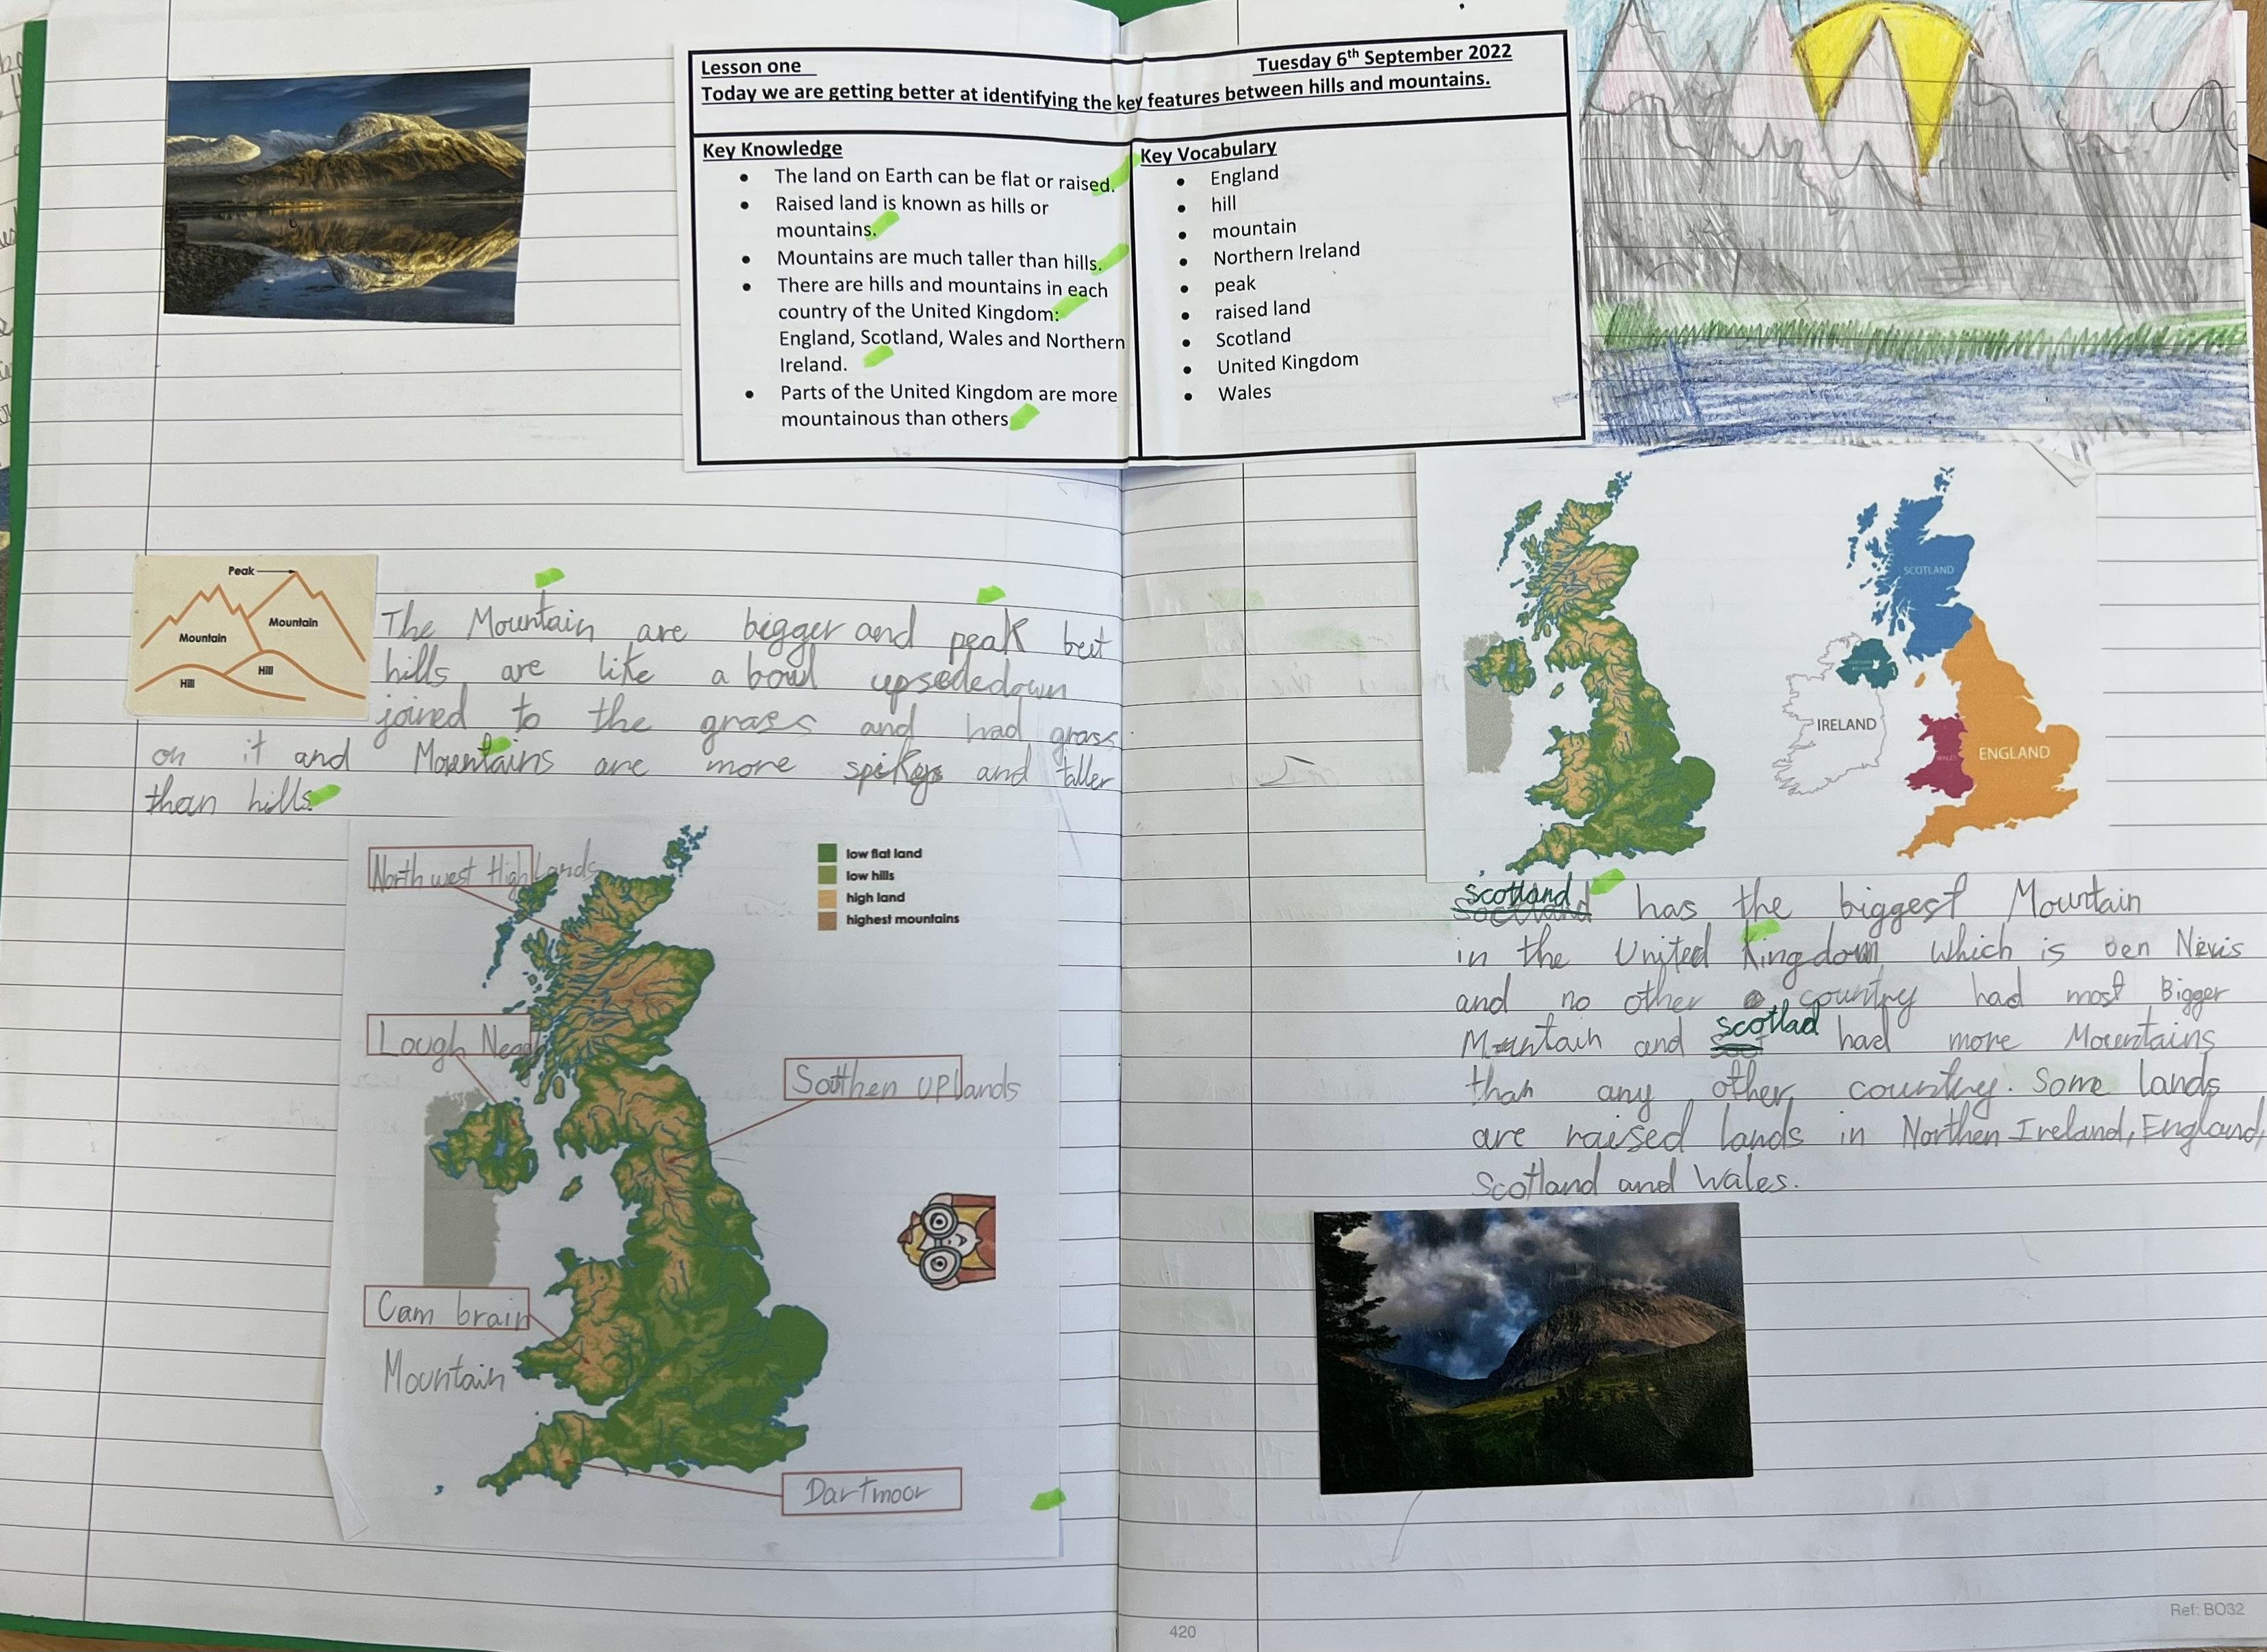 Lesson one
Tuesday 6th September 2022
Today we are getting better at identifying the key features between hills and mountains.
Key Knowledge
• The land on Earth can be flat or raised.
• Raised land is known as hills or
mountains.
• Mountains are much taller than hills.
• There are hills and mountains in each
country of the United Kingdom:
England, Scotland, Wales and Northern
Ireland.
• Parts of the United Kingdom are more
mountainous than others
Key Vocabulary
• England
• hill
• mountain
• Northern Ireland
• peak
• raised land
• Scotland
• United Kingdom
• Wales
Peak
Mountain
Mountain
Hill
Hill
The Mountain are bigger and peak but
hills are like a bowl upsededown
joined to the grass and had grass
on it and Mountains are more spikey and taller
than hills
North west Highlands
low flat land
low hills
high land
highest mountains
Lough Neagh
Southen UPlands
Cam brain
Mountain
Dartmoor
SCOTLAND
IRELAND
WALES
ENGLAND
scotland has the biggest Mountain
in the United Kingdom which is ben Nevis
and no other country had most Bigger
Mountain and scotlad had more Mountains
than any other country. Some lands
are raised lands in Northen Ireland, England,
Scotland and Wales.
420
Ref: BO32